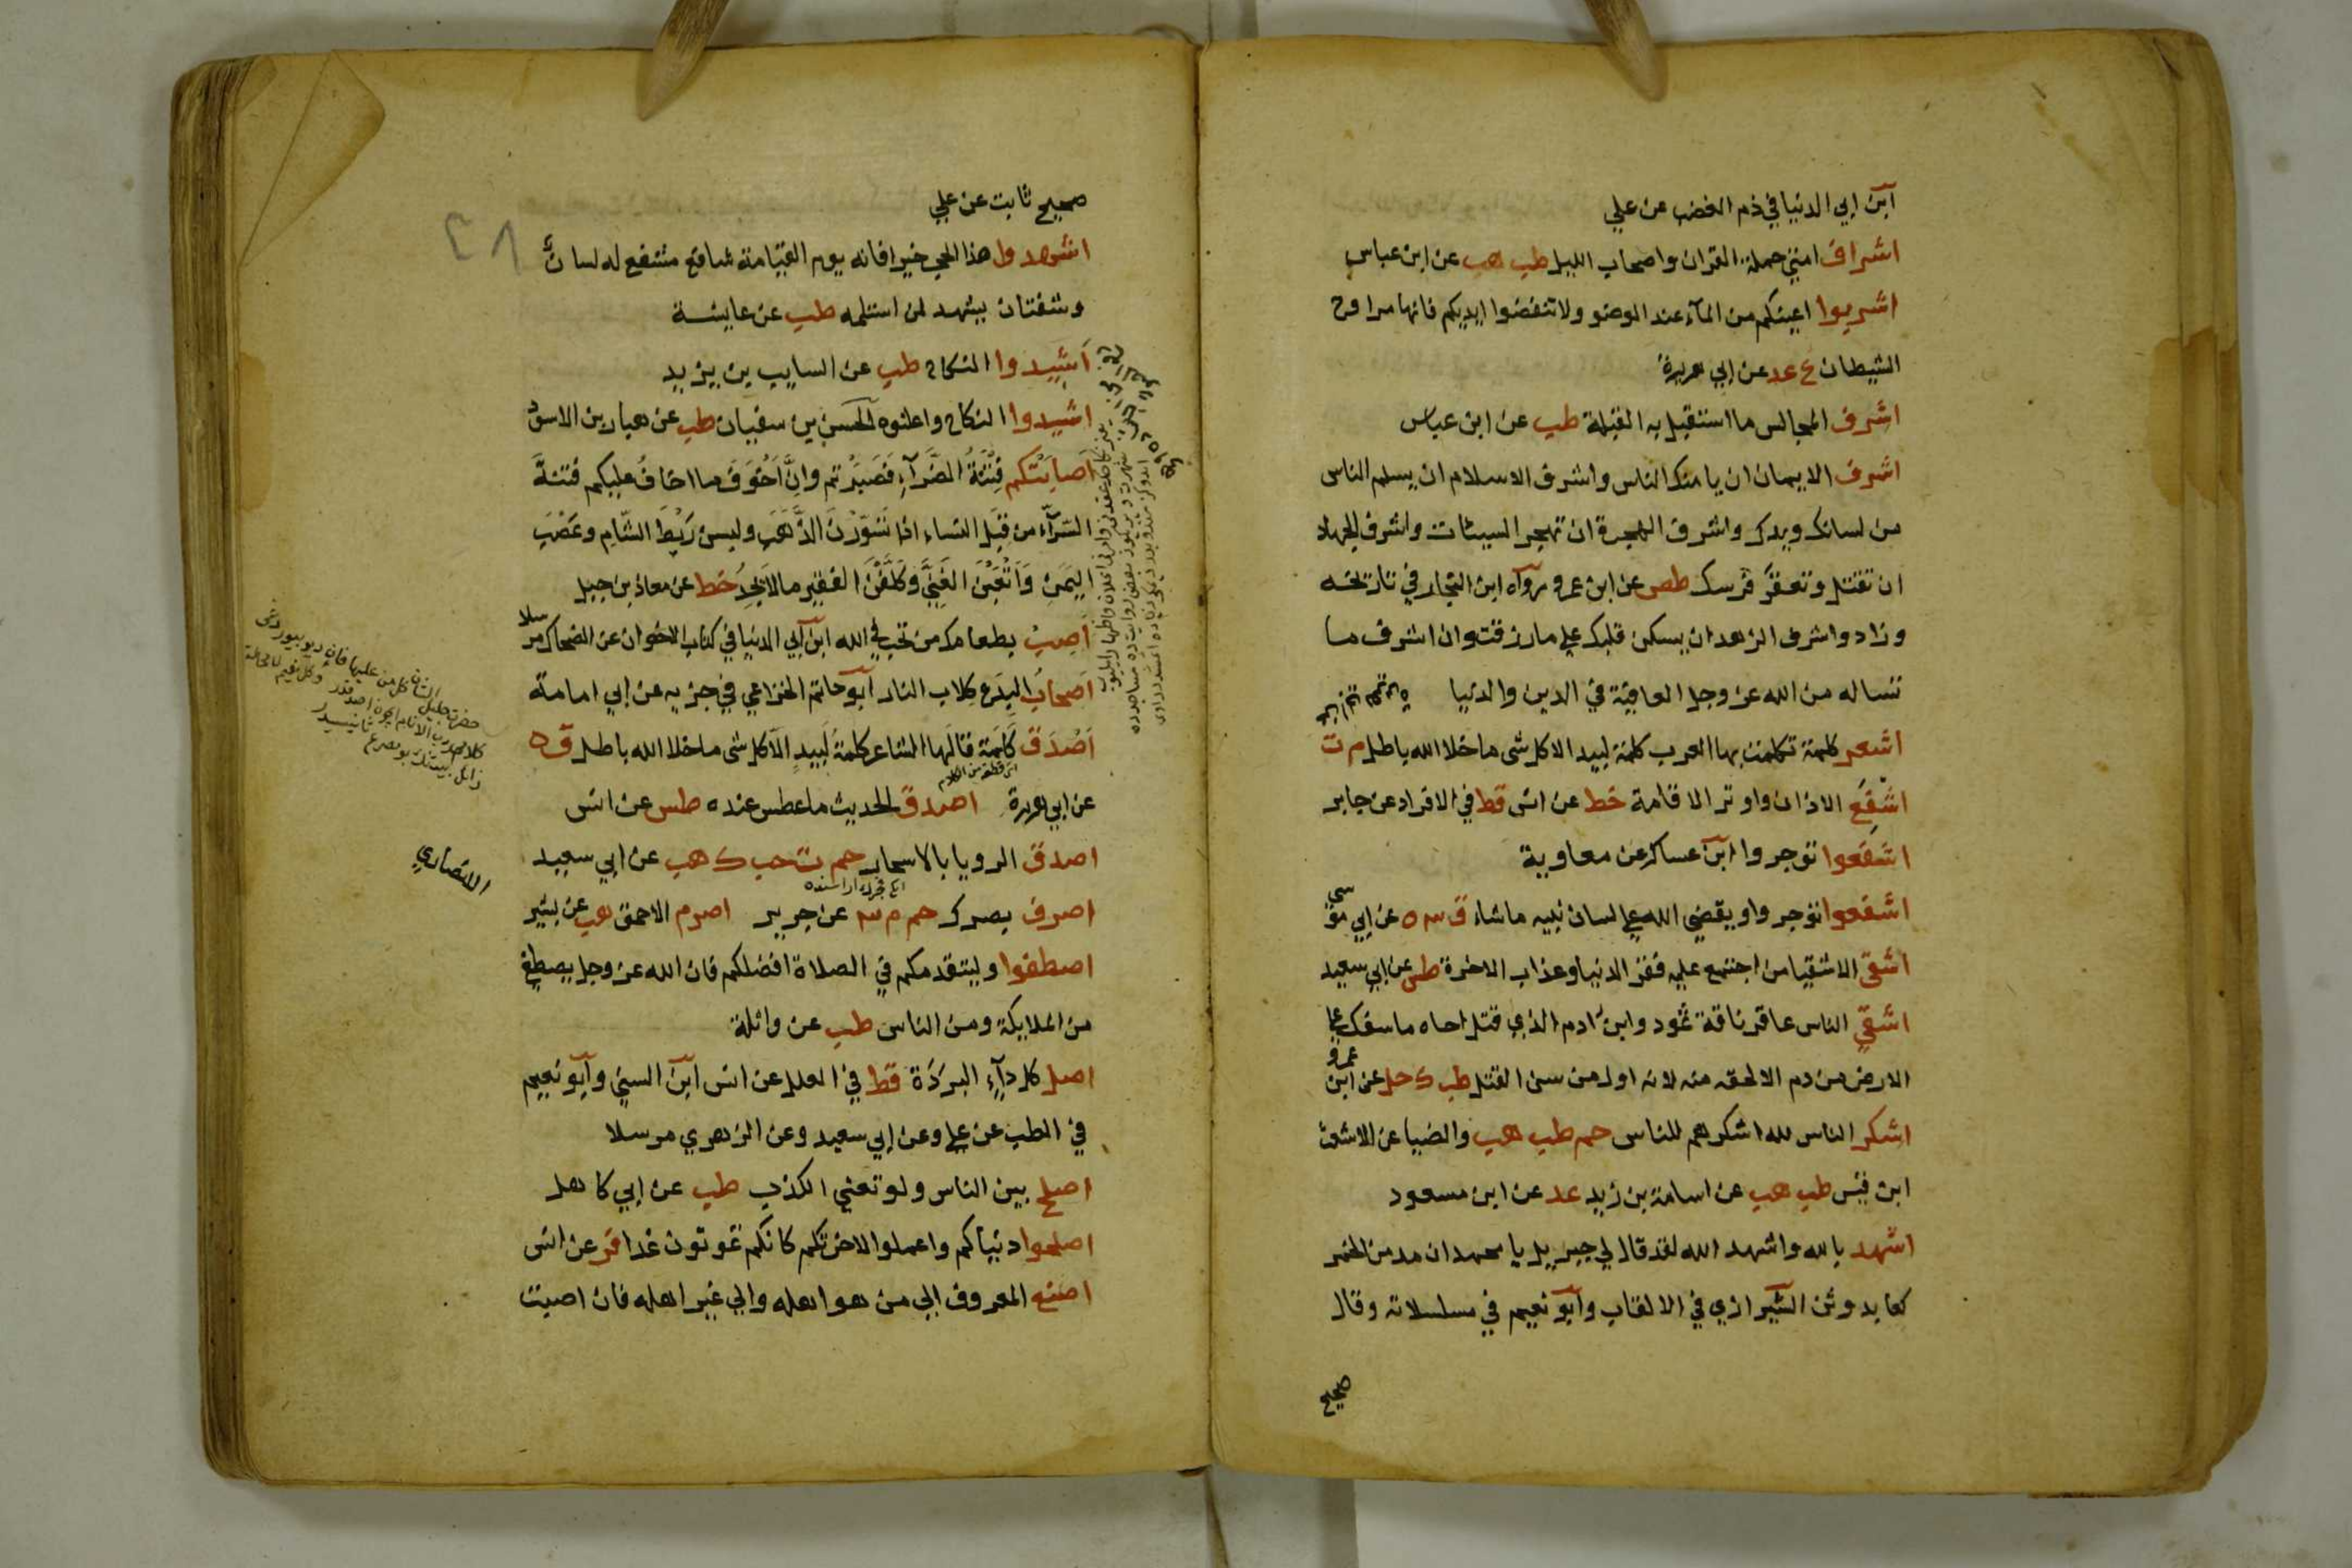 ابن ابي الدنيا في ذم الغضب عن علي
اشراف امتي حملة القران واصحاب الليل طب هب عن ابن عباس
اشربوا اعينكم من المآء عند الوضو ولا تنفضوا ايديكم فانها مراوح
الشيطان ع عد عن ابي هريرة
اشرف المجالس ما استقبل به القبلة طب عن ابن عباس
اشرف الايمان ان يامنك الناس واشرف الاسلام ان يسلم الناس
من لسانك ويدك واشرف الهجرة ان تهجر السيئات واشرف الجهاد
ان تقتل وتعقر فرسك طص عن ابن عمر ورواه ابن النجار في تاريخه
وزاد واشرف الزهد ان يسكن قلبك علي مارزقت وان اشرف ما
تساله من الله عز وجل العافية في الدين والدنيا
اشعر كلمة تكلمت بها العرب كلمة لبيد الا كل شى ما خلا الله باطل م ت
عن ابي هريرة
اشفع الاذان واوتر الاقامة خط عن انس قط في الافراد عن جابر
اشفعوا توجروا ابن عساكر عن معاوية
اشفعوا توجروا ويقضي الله علي لسان نبيه ماشاء ق ٣ عن ابي موسى
اشقى الاشقيا من اجتمع عليه فقر الدنيا وعذاب الاخرة طس عن ابي سعيد
اشقى الناس عاقر ناقة ثمود وابن ادم الذي قتل اخاه ما سفك علي
الارض من دم الا لحقه منه لانه اول من سن القتل طب ك حل عن ابن عمرو
اشكر الناس لله اشكرهم للناس حم طب هب والضيا عن الاشعث
ابن قيس طب هب عن اسامة بن زيد عد عن ابن مسعود
اشهد بالله واشهد الله لقد قال لي جبريل يا محمد ان مدمن الخمر
كعابد وثن الشيرازي في الالقاب وابو نعيم في مسلسلاته وقال
صحيح
صحيح ثابت عن علي
اشهدوا هذا الحجر خيرا فانه يوم القيامة شافع مشفع له لسان
وشفتان يشهد لمن استلمه طب عن عايشة
اَشِيدوا النكاح طب عن السايب بن يزيد
اشيدوا النكاح واعلنوه الحسن بن سفيان طب عن هبار بن الاسود
اَصابَتْكم فِتْنَةُ الضَّرَآءِ فَصَبَرْتم واِنَّ اَخْوَفَ ما اخافُ عليكم فتنة
السَّرَّآءِ من قِبَلِ النساء اذا تَسَوَّرْنَ الذَّهَبَ ولبسن رَيْطَ الشّامِ وعَصْبَ
اليَمَنِ وَاَتْعَبْنَ الغَنِيَّ وكَلَّفْنَ الفقير ما لا يَجِدُ خط عن معاذ بن جبل
اَصِبْ بطعامك من تحب في الله ابن ابي الدنيا في كتاب الاخوان عن الضحاك مرسلا
اَصْحابُ البِدَعِ كِلاب النار ابو حاتم الخزاعي في جزيه عن ابي امامة
اَصْدَق كَلِمَة قالَها الشاعر كلمةُ لَبيدٍ الا كل شى ما خلا الله باطل ق ه
عن ابي هريرة اصدق الحديث ما عطس عنده طس عن انس
اصدق الرويا بالاسحار حم ت حب ك هب عن ابي سعيد
اصرف بصرك حم م ٣ عن جرير اصرم الاحمق هب عن بشير
الانصاري
اصطفوا وليتقدمكم في الصلاة افضلكم فان الله عز وجل يصطفي
من الملايكة ومن الناس طب عن واثلة
اصل كل دآءٍ البردة قط في العلل عن انس ابن السني وابو نعيم
في الطب عن علي وعن ابي سعيد وعن الزهري مرسلا
اصلح بين الناس ولو تعني الكذب طب عن ابي كاهل
اصلحوا دنياكم واعملوا لاخرتكم كانكم تموتون غدا فر عن انس
اصنع المعروف الي من هو اهله والي غير اهله فان اصبت